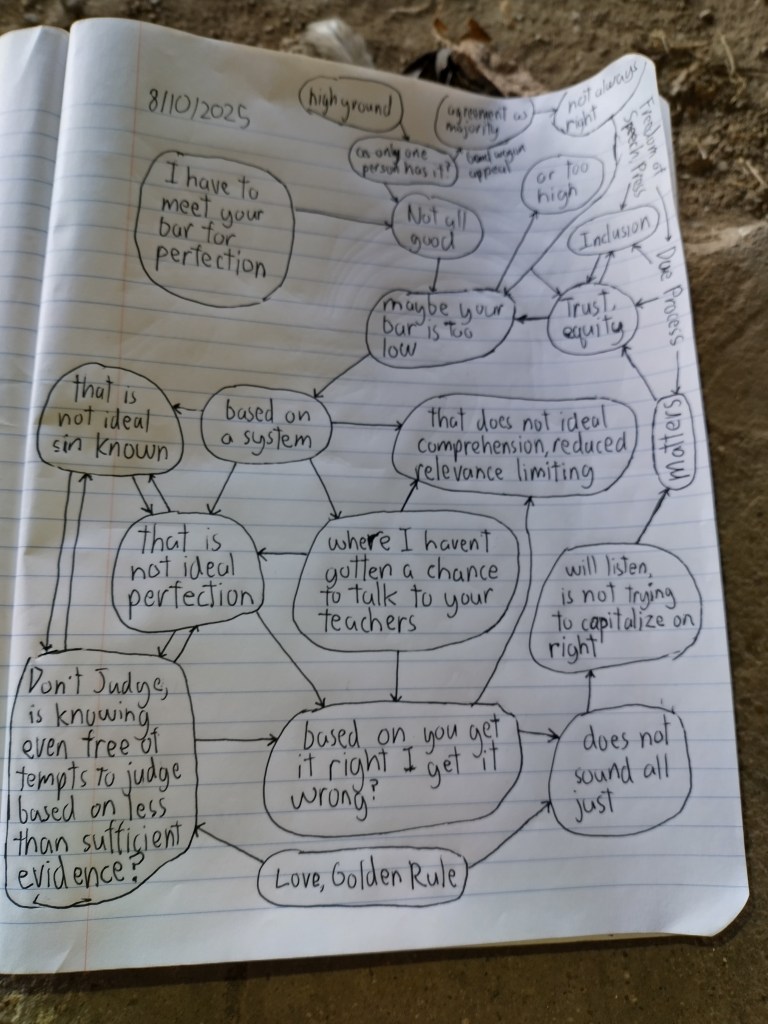 8/10/2025
high ground
agreement as
majority
not always
right
Freedom of
Speech Press
as only one
person has it?
appeal
or too
high
I have to
meet your
bar for
perfection
Not all
good
Inclusion
Due Process
maybe your
bar is too
low
Trust,
equity
that is
not ideal
sin known
based on
a system
that does not ideal
comprehension, reduced
relevance limiting
Matters
that is
not ideal
perfection
where I havent
gotten a chance
to talk to your
teachers
will listen,
is not trying
to capitalize on
right
Don't Judge,
is knowing
even free of
tempts to judge
based on less
than sufficient
evidence?
based on you get
it right I get it
wrong?
does not
sound all
just
Love, Golden Rule